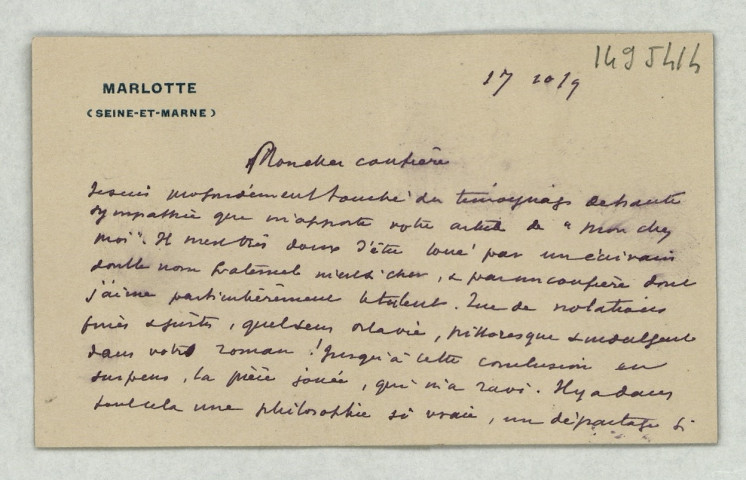 1495414
MARLOTTE
(SEINE-ET-MARNE)
17 10 19
Mon cher confrère
Je suis profondément touché du témoignage de haute
sympathie que m'apporte votre article de "Mon chez
moi". Il m'est très doux d'être loué par un écrivain
dont le nom fraternel m'est si cher, & par un confrère dont
j'aime particulièrement le talent. Que de notations
fines & justes, quel sens de la vie, pittoresque & indulgent
dans votre roman! Jusqu'à cette conclusion en
suspens, la pièce jouée, qui m'a ravi. Il y a dans
tout cela une philosophie si vraie, un départage si